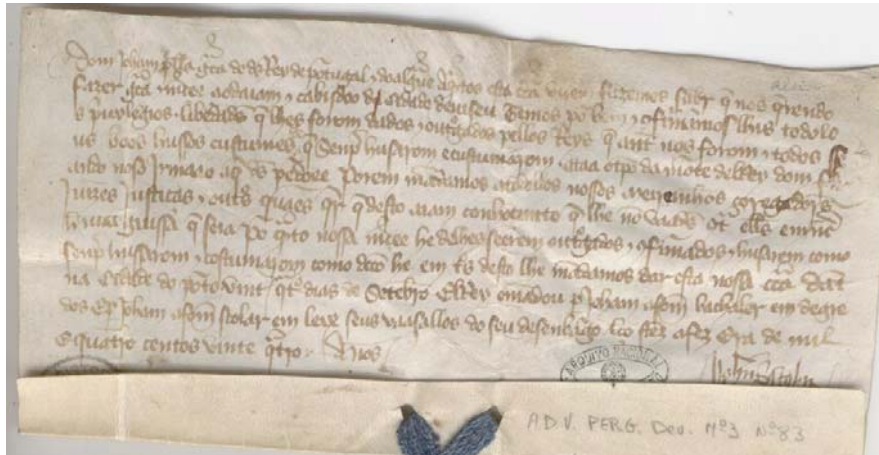 Dom Joham pella graça de ds Rey de portugal e do algarue A qntos esta carta virem fazemos saber que nos qrendo
fazer graça e merce ao daiam e cabidoo da Cidade de viseu Teemos por bem e confirmamoslhis todolos
s priuylegios e liberdades que lhes forom dados e outorgados pellos Reys que ant nos forom e todos se
us boos hussos e custumes que senpre husarom e custumarom ataa o tpo da morte delRey dom fern
ando nosso Irmaão a que ds perdoe Porem mandamos a todollos nossos meyrinhos coregadores
Juizes Justiças e outros quaes qr que desto aiam conhocimento que lhe no vaades contra elles em nen
hũa guissa que seia por qnto nossa merce he de lhe seerem outorgados e confirmados e husarem como
senpre hussarom e costumarom como dcto he em ts desto lhe mandamos dar esta nossa carta dant
na Cidade do porto vinte qtro dias de Setebro ElRey o mandou per Joham afom bachaler em degre
dos e per Joham afom scolar em leys seus vasallos do seu desenbargo a fez Era de mil
e quatro centos vinte qtro Anos
ARQUIVO NACIONAL
A.D.V. PERG. Dev. Mº3 Nº83